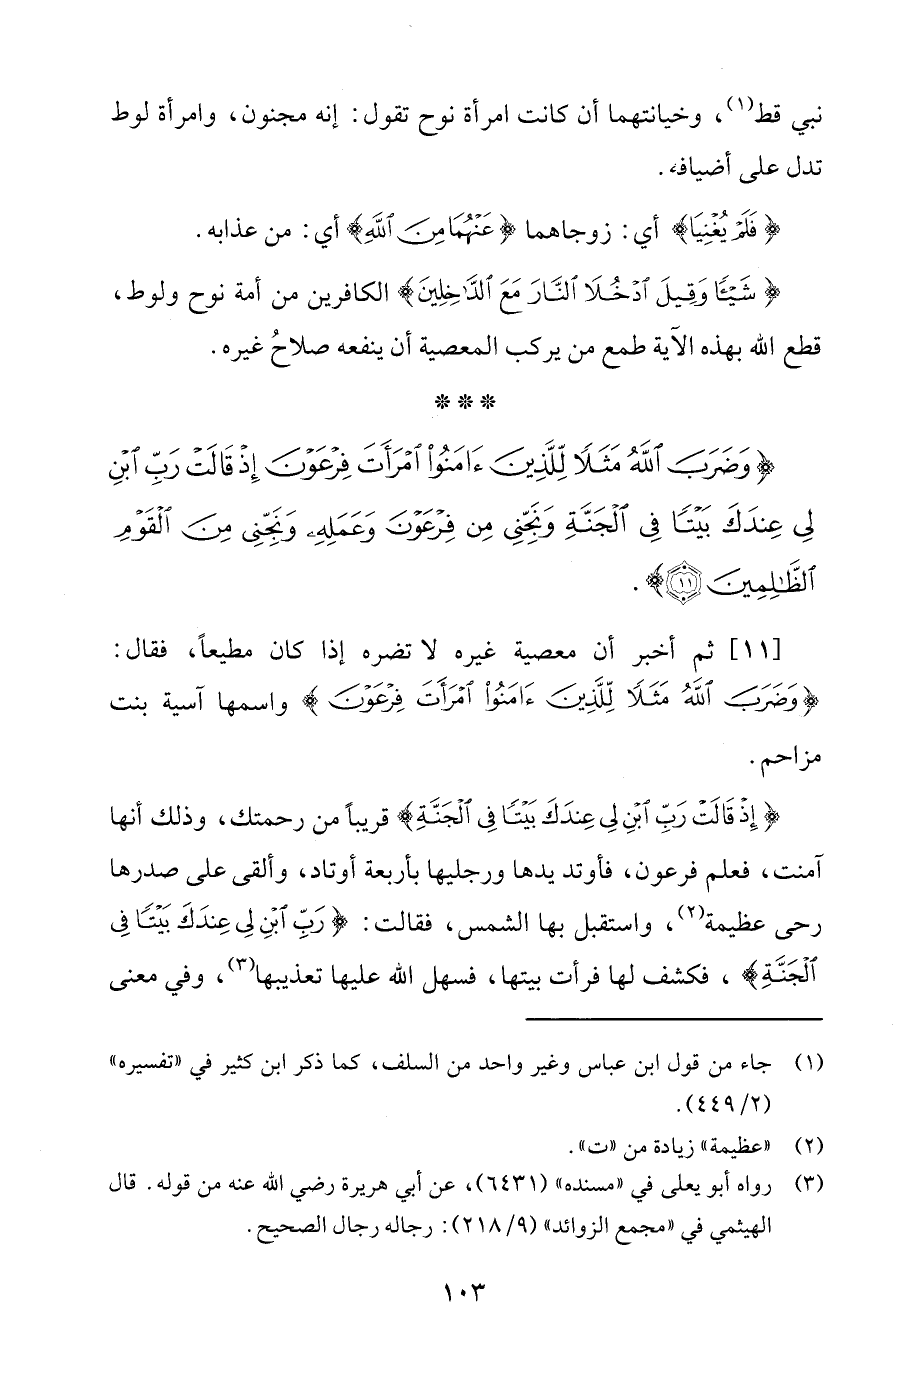 نبي قط(١)، وخيانتهما أن كانت امرأة نوح تقول: إنه مجنون، وامرأة لوط
تدل على أضيافه.
﴿فَلَمْ يُغْنِيَا﴾ أي: زوجاهما ﴿عَنْهُمَا مِنَ ٱللَّهِ﴾ أي: من عذابه.
﴿شَيْـًٔا وَقِيلَ ٱدْخُلَا ٱلنَّارَ مَعَ ٱلدَّٰخِلِينَ﴾ الكافرين من أمة نوح ولوط،
قطع الله بهذه الآية طمع من يركب المعصية أن ينفعه صلاحُ غيره.
***
﴿وَضَرَبَ ٱللَّهُ مَثَلًا لِّلَّذِينَ ءَامَنُوا۟ ٱمْرَأَتَ فِرْعَوْنَ إِذْ قَالَتْ رَبِّ ٱبْنِ
لِى عِندَكَ بَيْتًا فِى ٱلْجَنَّةِ وَنَجِّنِى مِن فِرْعَوْنَ وَعَمَلِهِۦ وَنَجِّنِى مِنَ ٱلْقَوْمِ
ٱلظَّٰلِمِينَ ١١﴾.
[١١] ثم أخبر أن معصية غيره لا تضره إذا كان مطيعاً، فقال:
﴿وَضَرَبَ ٱللَّهُ مَثَلًا لِّلَّذِينَ ءَامَنُوا۟ ٱمْرَأَتَ فِرْعَوْنَ﴾ واسمها آسية بنت
مزاحم.
﴿إِذْ قَالَتْ رَبِّ ٱبْنِ لِى عِندَكَ بَيْتًا فِى ٱلْجَنَّةِ﴾ قريباً من رحمتك، وذلك أنها
آمنت، فعلم فرعون، فأوتد يدها ورجليها بأربعة أوتاد، وألقى على صدرها
رحى عظيمة(٢)، واستقبل بها الشمس، فقالت: ﴿رَبِّ ٱبْنِ لِى عِندَكَ بَيْتًا فِى
ٱلْجَنَّةِ﴾، فكشف لها فرأت بيتها، فسهل الله عليها تعذيبها(٣)، وفي معنى
(١) جاء من قول ابن عباس وغير واحد من السلف، كما ذكر ابن كثير في «تفسيره»
(٤٤٩/٢).
(٢) «عظيمة» زيادة من «ت».
(٣) رواه أبو يعلى في «مسنده» (٦٤٣١)، عن أبي هريرة رضي الله عنه من قوله. قال
الهيثمي في «مجمع الزوائد» (٢١٨/٩): رجاله رجال الصحيح.
١٠٣